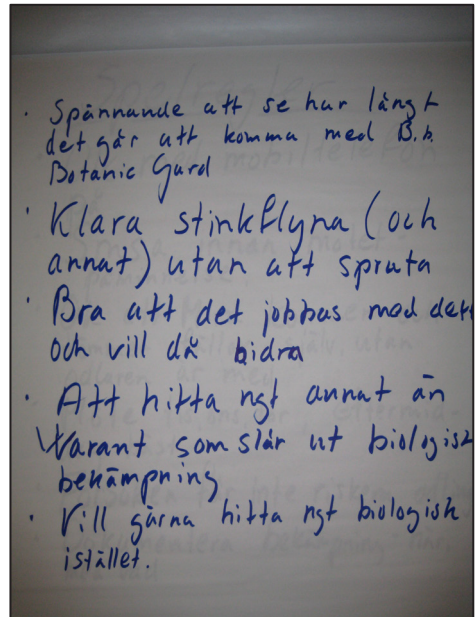 · Spännande att se hur långt
det går att komma med B.b.
Botanic Gard
· Klara stinkflyna (och
annat) utan att spruta
· Bra att det jobbas med det
och vill då bidra
· Att hitta ngt annat än
Varant som slår ut biologisk
bekämpning
· Vill gärna hitta ngt biologisk
istället.